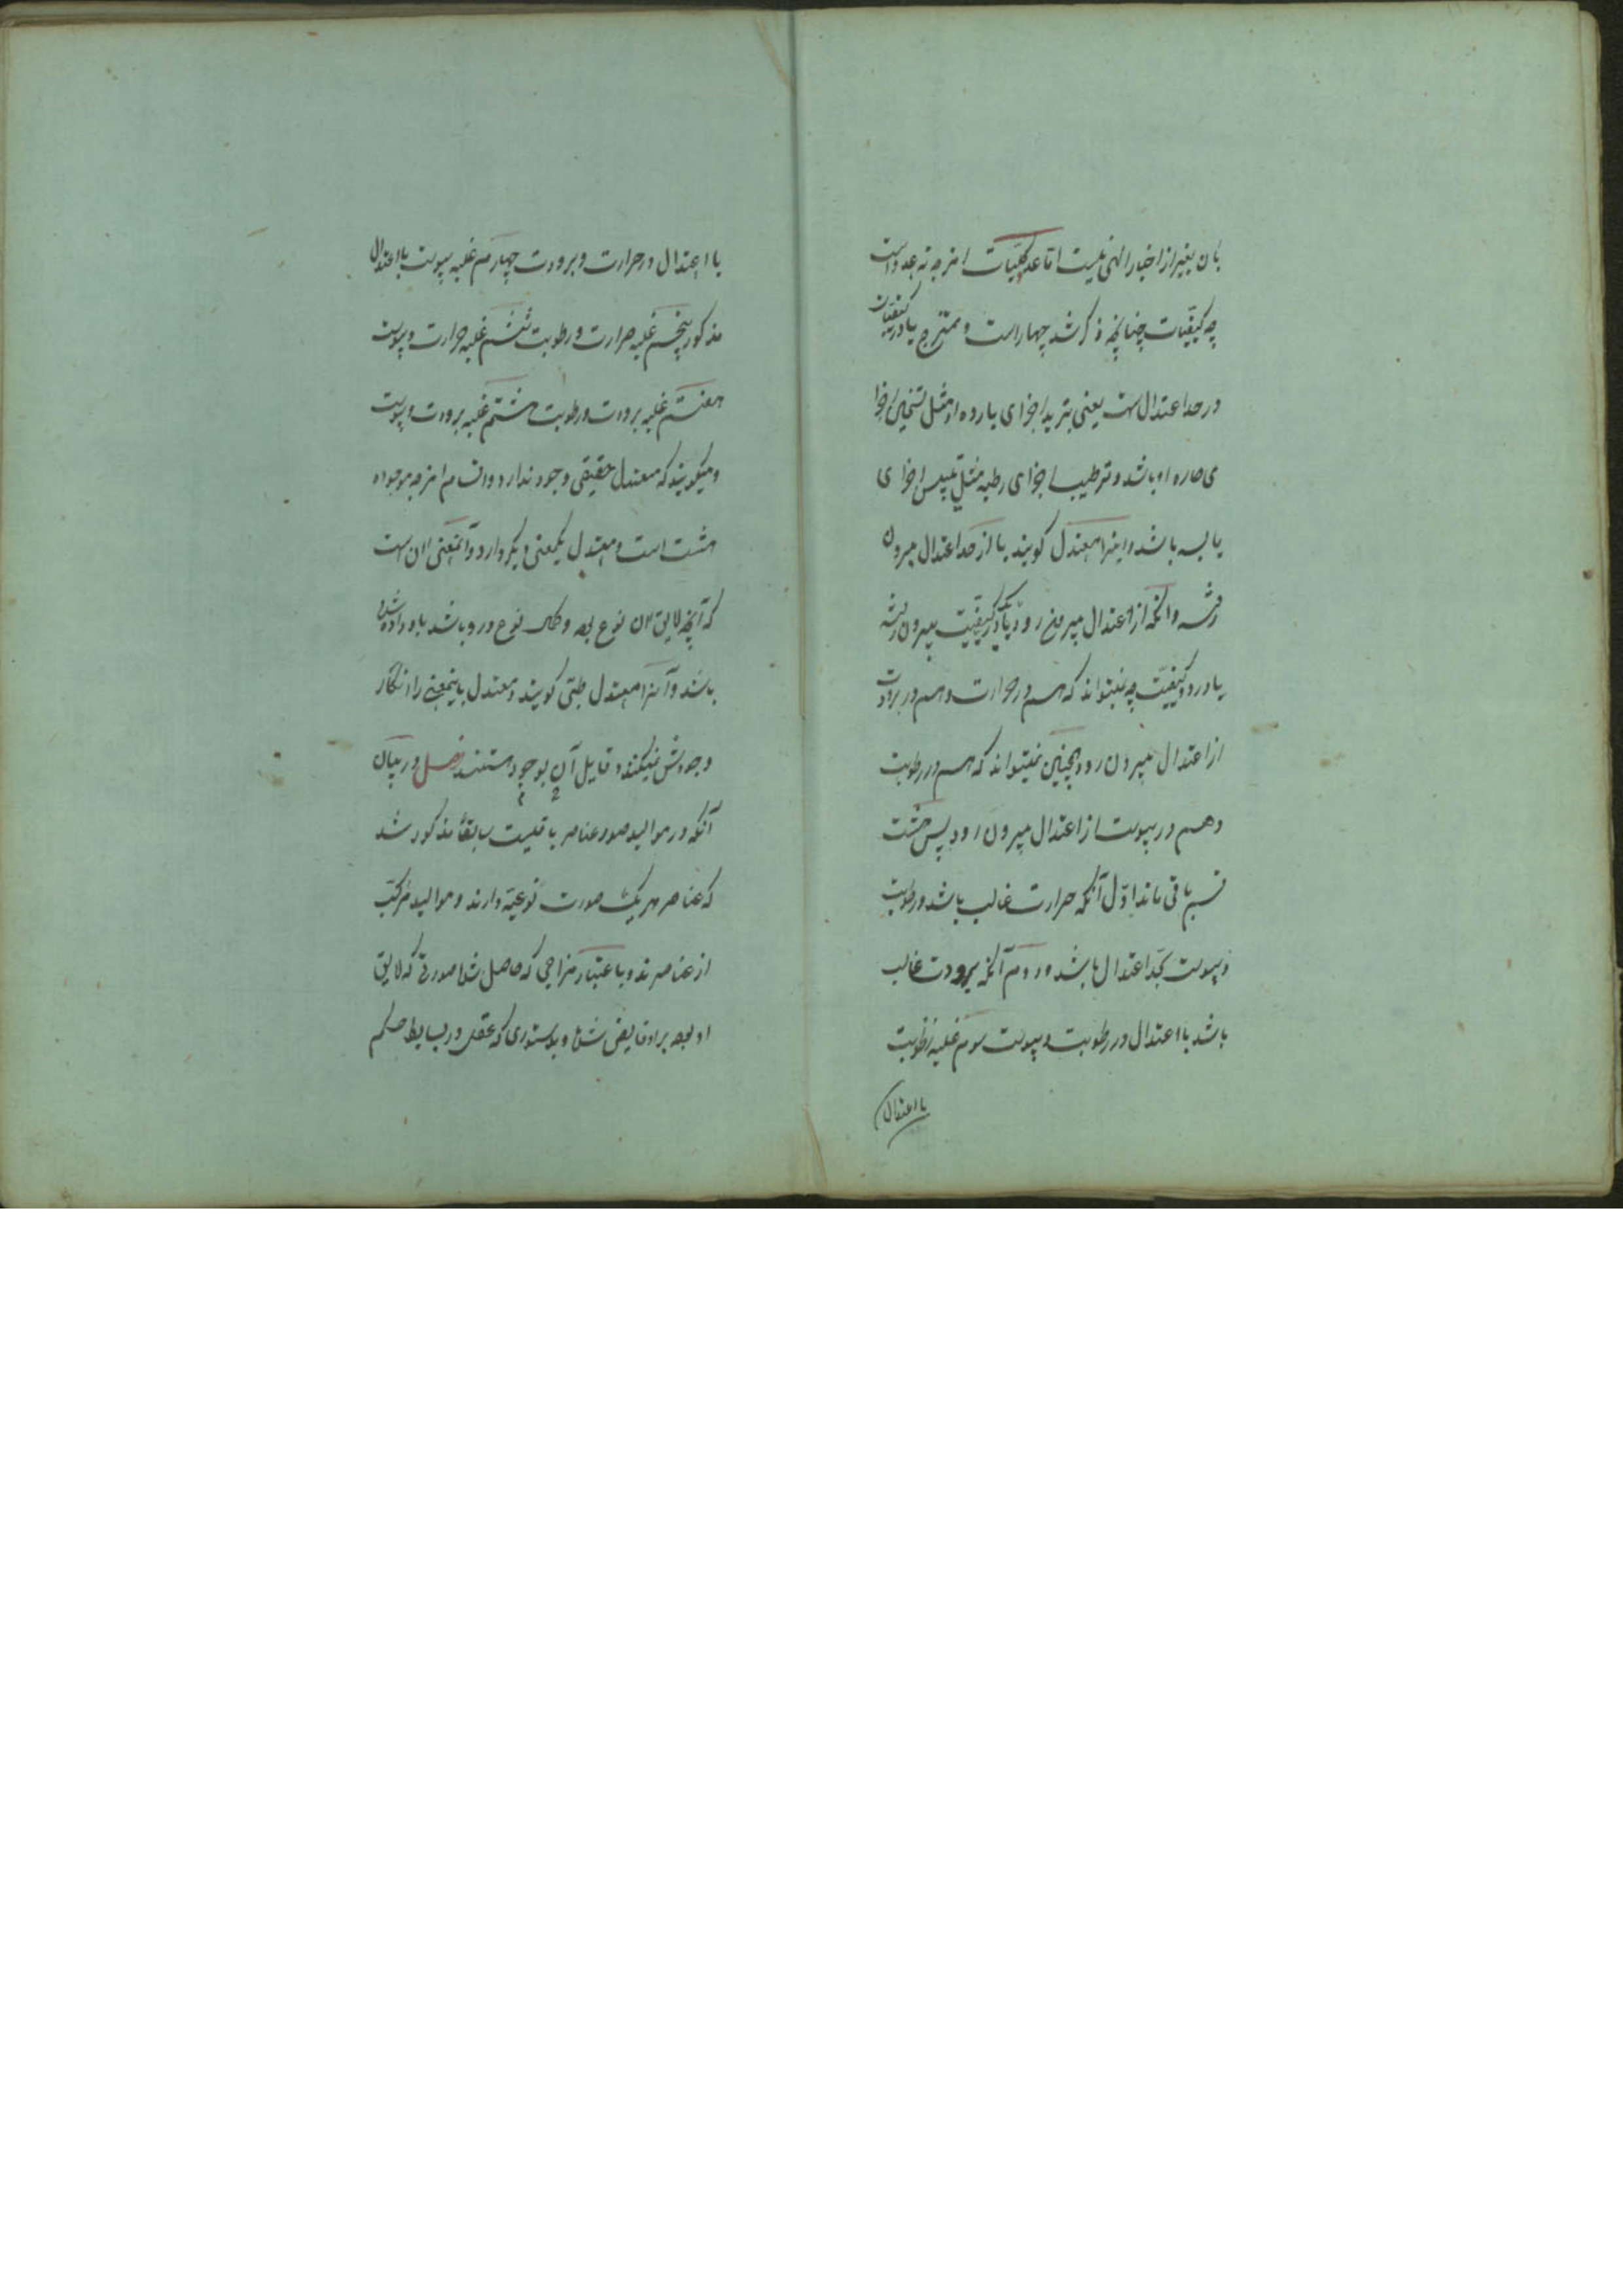 بان بغیر از اخبار الهی نیست اما عدد کلیات امزجه نه عدد است
چه کیفیات چنانچه ذکر شد چهار است و ممتزج یا در کیفیات
در حد اعتدال است یعنی تبرید اجزای بارده او مثل تسخین اجزا
ی حاره او باشد و ترطیب اجزای رطبه مثل تیبیس اجزای
یابسه باشد و اینرا معتدل کویند یا از حد اعتدال بیرون
رفته و آنکه از اعتدال بیرون رود یا در یک کیفیت بیرون رفته
یا در دو کیفیت چه نمیتواند که هم در حرارت و هم در برودت
از اعتدال بیرون رود و همچنین نمیتواند که هم در رطوبت
و هم در یبوست از اعتدال بیرون رود پس هشت
قسم باقی ماند اول آنکه حرارت غالب باشد و رطوبت
و یبوست بحد اعتدال باشد و دوم آنکه برودت غالب
باشد با اعتدال در رطوبت و یبوست سوم غلبه رطوبت
با اعتدال
با اعتدال در حرارت و برودت چهارم غلبه یبوست با اعتدال
مذکور پنجم غلبه حرارت و رطوبت ششم غلبه حرارت و یبوست
هفتم غلبه برودت و رطوبت هشتم غلبه برودت و یبوست
و میکویند که معتدل حقیقی وجود ندارد و اقسام امزجه موجوده
هشت است و معتدل یکمعنی دیکر دارد و آنمعنی آن است
که آنچه لایق آن نوع بود و کمال نوع در او باشد باو داده شده
باشد و آنرا معتدل طبی کویند و معتدل باینمعنی را انکار
وجودش نمیکنند و قایل آن بوجود هستند فصل در بیان
آنکه در موالید صور عناصر باقیست سابقا مذکور شد
که عناصر هر یک صورت نوعیه دارند و موالید مرکب
از عناصرند و باعتبار مزاجی که حاصل شد صورتی که لایق
او بود بر او فایض شد و بدستوری که عقل در بسایط حکم